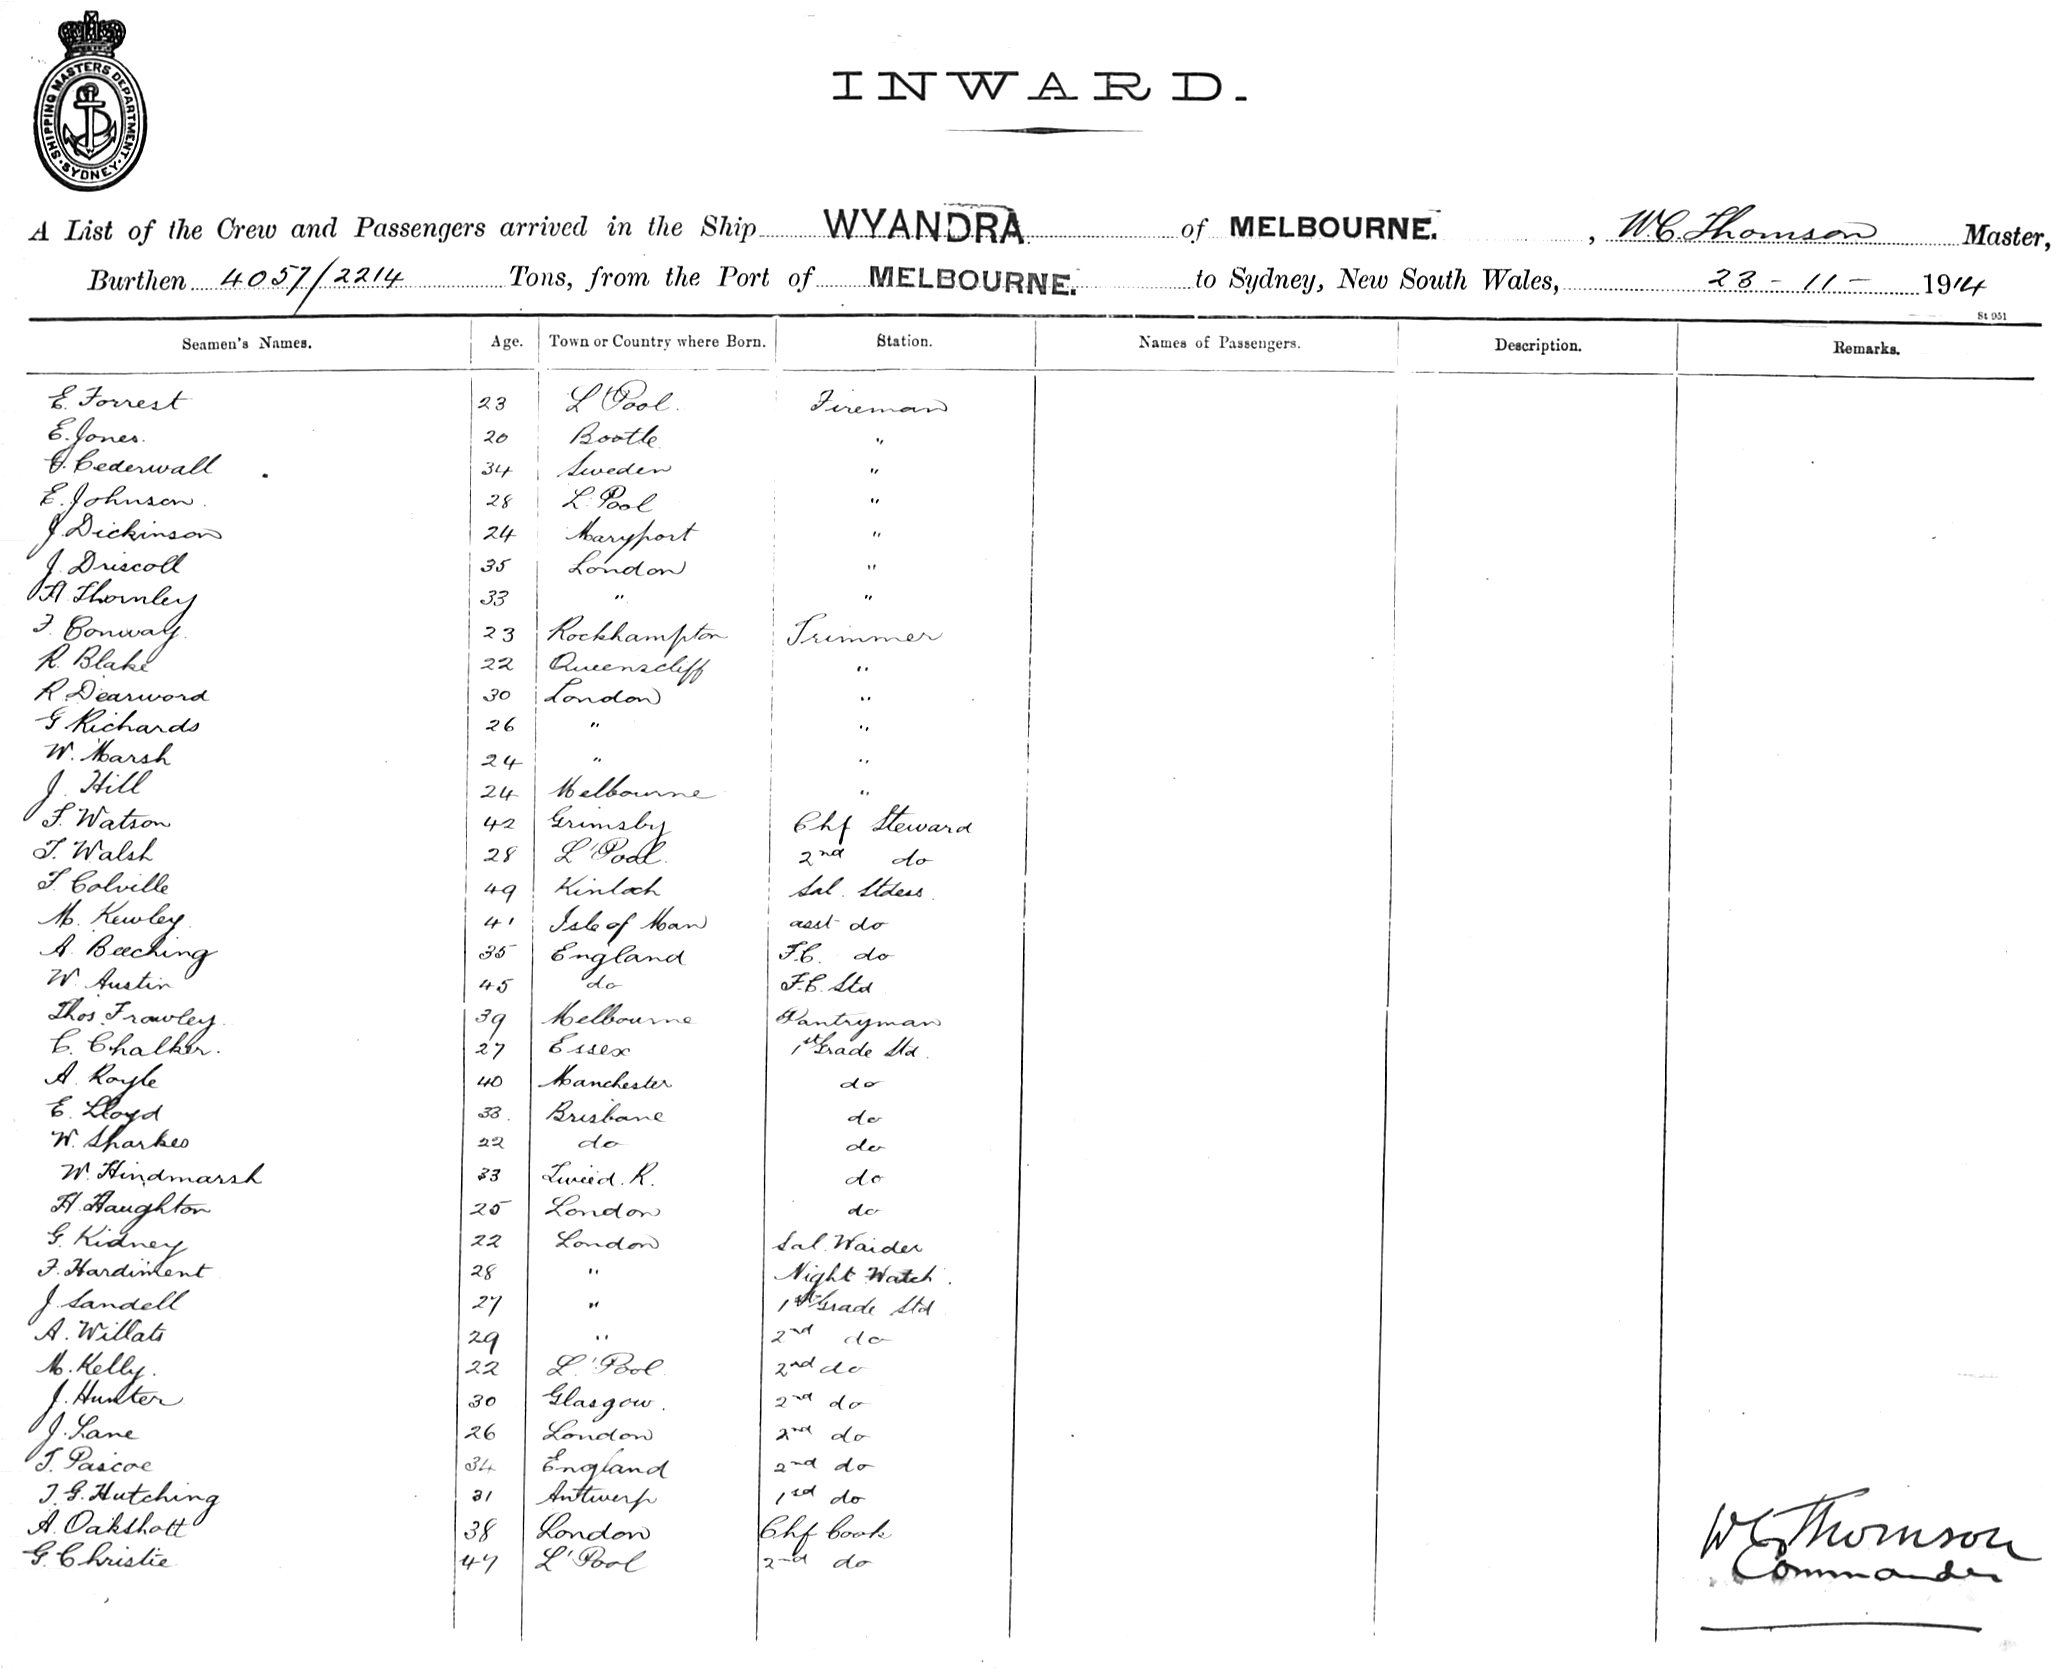 SHIPPING MASTERS DEPARTMENT · SYDNEY ·
INWARD.
A List of the Crew and Passengers arrived in the Ship WYANDRA of MELBOURNE. , W.C. Thomson Master,
Burthen 4057/2214 Tons, from the Port of MELBOURNE. to Sydney, New South Wales, 23 - 11 - 1914
St 951
Seamen's Names. Age. Town or Country where Born. Station. Names of Passengers. Description. Remarks.
E. Forrest 23 L'Pool. Fireman
E. Jones. 20 Bootle "
Cederwall 34 Sweden "
E. Johnson. 28 L'Pool "
J. Dickinson 24 Maryport "
J. Driscoll 35 London "
H. Thornley 33 " "
F. Conway. 23 Rockhampton Trimmer
R. Blake 22 Queenscliff "
R Dearword 30 London "
G Richards 26 " "
W. Marsh 24 " "
J. Hill 24 Melbourne "
F. Watson 42 Grimsby Chf Steward
T. Walsh 28 L'Pool. 2nd do
T. Colville 49 Kinloch Sal. Stdess.
M. Kewley 41 Isle of Man asst do
A. Beeching 35 England F.C. do
W. Austin 45 do F.C. Std
Thos. Frowley. 39 Melbourne Pantryman
C. Chalker. 27 Essex 1st Grade Std.
A. Royle 40 Manchester do
E. Lloyd 33. Brisbane do
W. Sharkes 22 do do
W. Hindmarsh 33 Tweed. R. do
H. Haughton 25 London do
G. Kidney 22 London Sal. Waider
F. Hardiment 28 " Night Watch.
J. Sandell 27 " 1st Grade Std
A. Willats 29 " 2nd do
M. Kelly. 22 L'Pool 2nd do
J. Hunter 30 Glasgow. 2nd do
J. Lane 26 London 2nd do
T. Pascoe 34 England 2nd do
T. G. Hutching 31 Antwerp 1st do
A. Oakshott 38 London Chf Cook
G. Christie 47 L'Pool 2nd do
W C Thomson
Commander